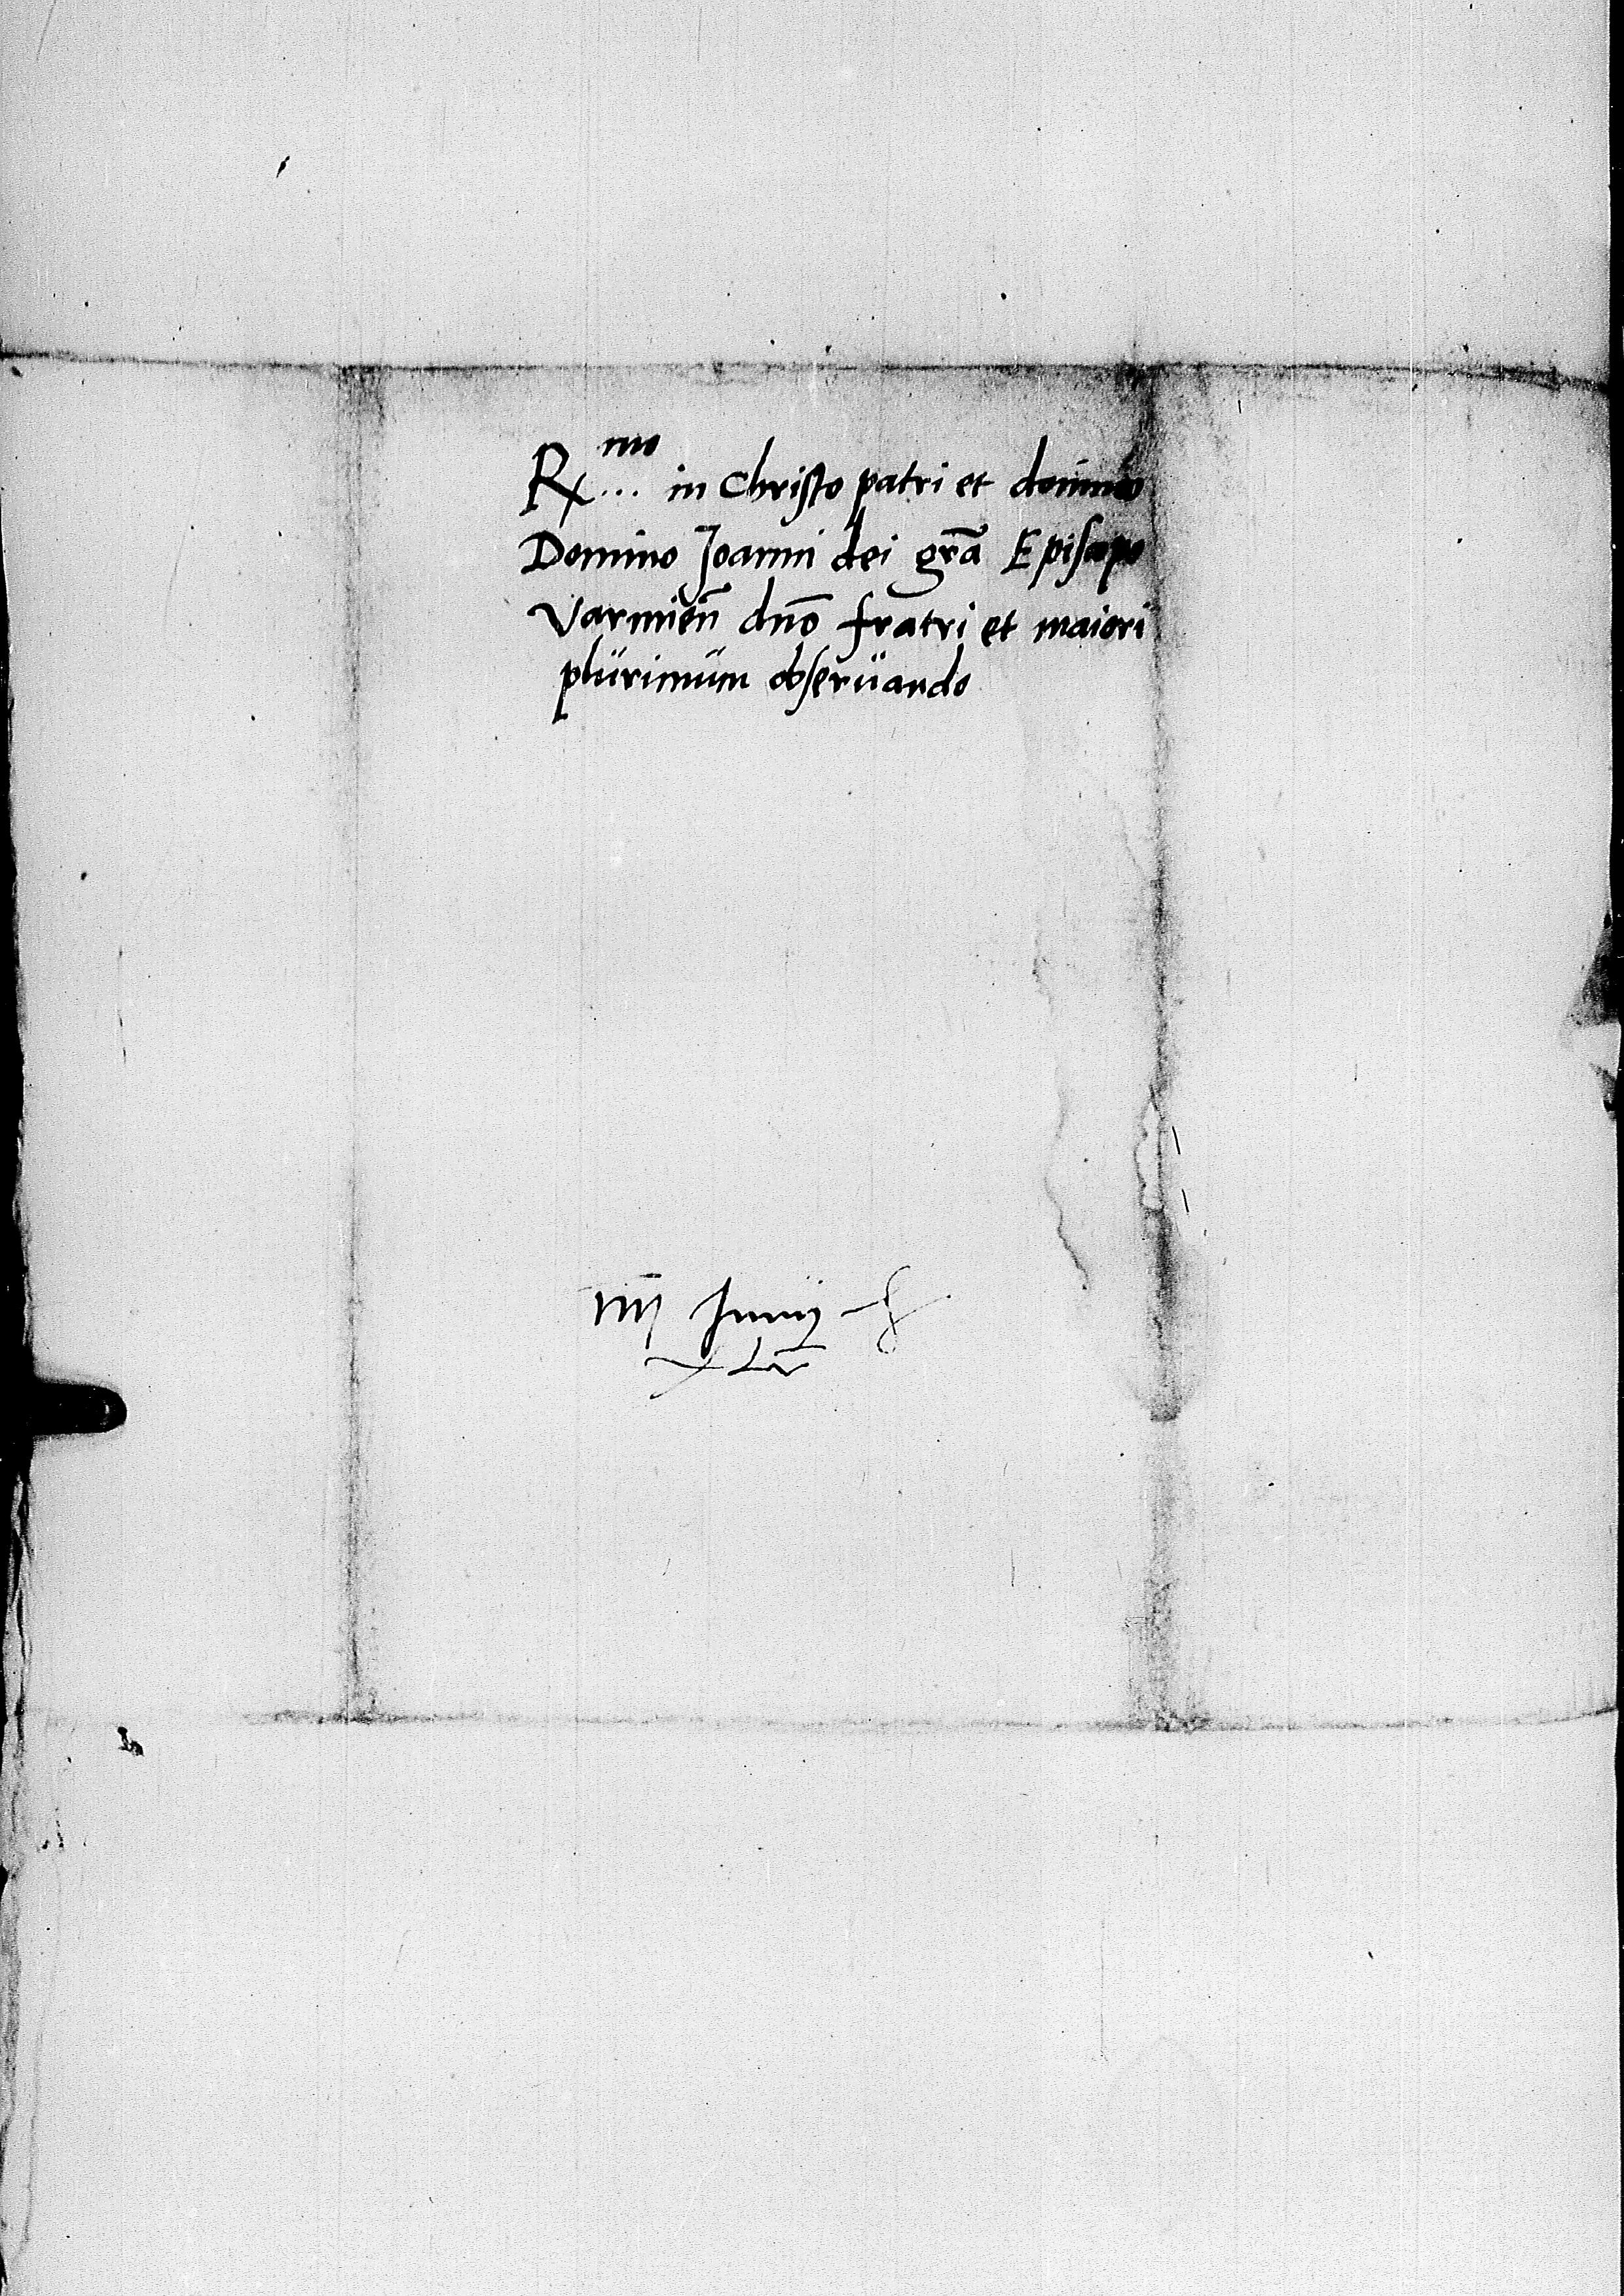 R<sup>mo</sup>... in Christo patri et domino
Domino Joanni dei gr̃a Episcopo
Varmieñ dño fratri et maiori
plürimüm obserüando
IIII Junij